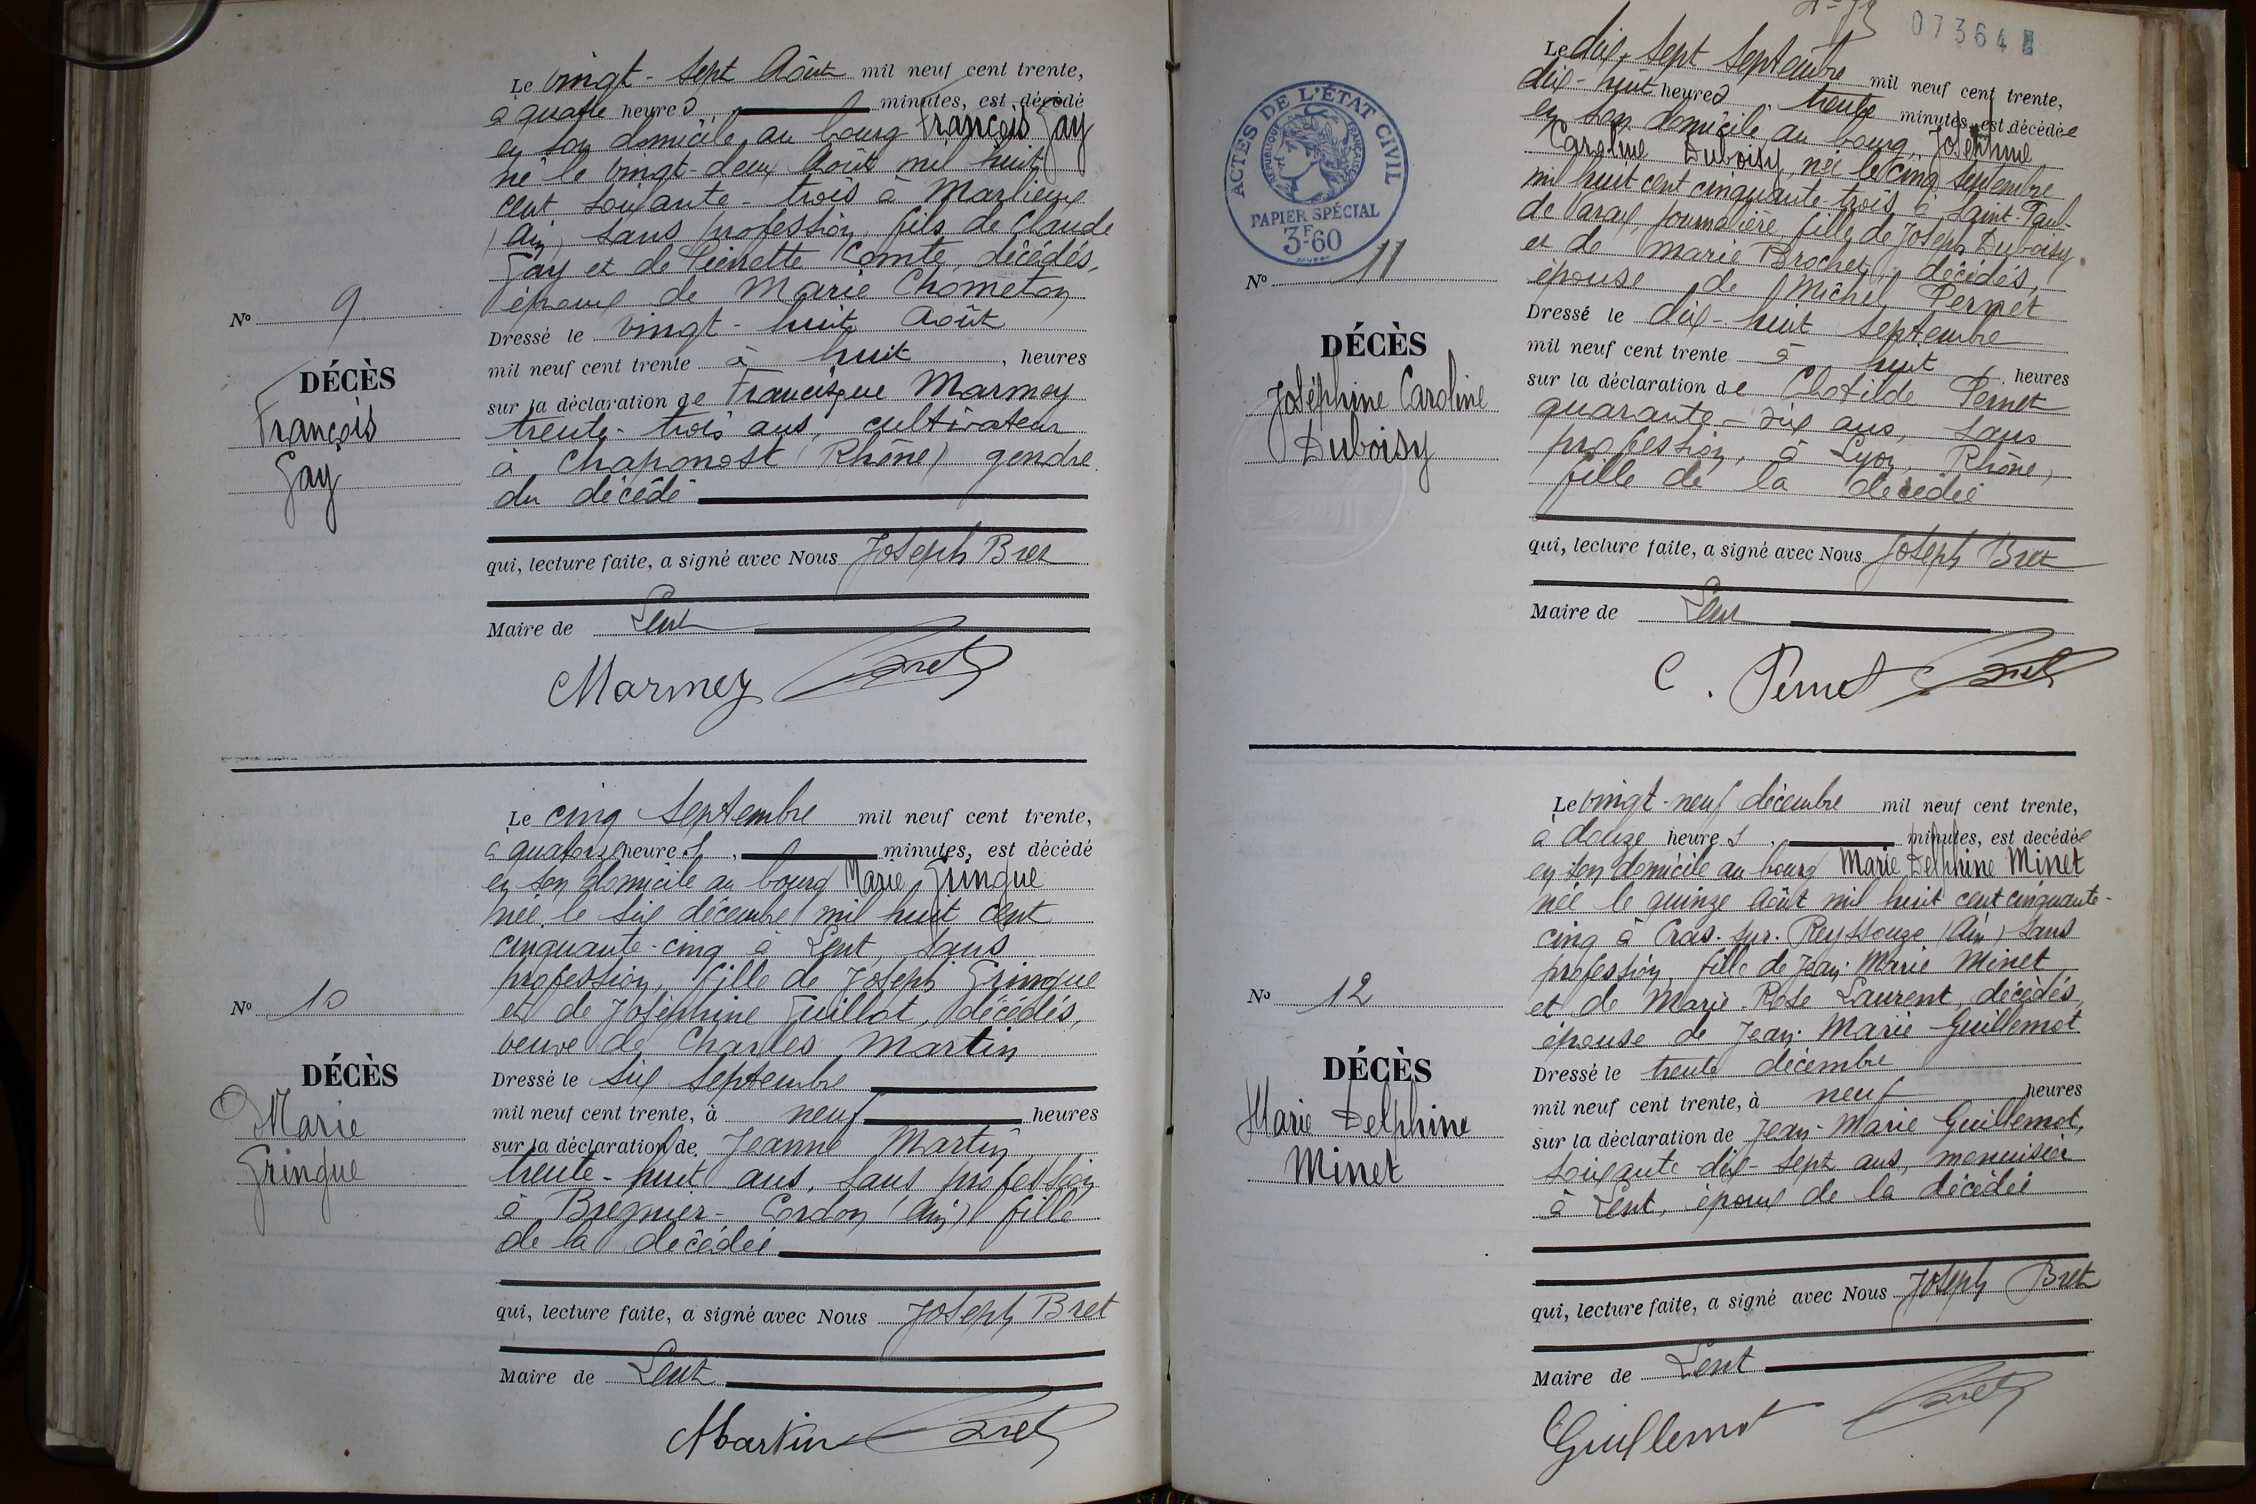 Le vingt-sept Août mil neuf cent trente,
à quatre heures minutes, est décédé
en son domicile au bourg François Gay
né le vingt-deux Août mil huit
cent soixante-trois à Marlieux
(Ain) sans profession, fils de Claude
Gay et de Pierrette Comte, décédés,
époux de Marie Chometon
Dressé le vingt-huit Août
mil neuf cent trente à huit heures
sur la déclaration de Francisque Marmey
trente-trois ans, cultivateur
à Chaponost (Rhône) gendre
du décédé
qui, lecture faite, a signé avec Nous Joseph Bret
Maire de Lent
Marmey Bret
No 9.
DÉCÈS
François
Gay
Le cinq Septembre mil neuf cent trente,
à quatorze heures, minutes, est décédé
en son domicile au bourg Marie Gringue
née le six décembre mil huit cent
cinquante-cinq à Lent, sans
profession, fille de Joseph Gringue
et de Joséphine Guillot, décédés,
veuve de Charles Martin
Dressé le six Septembre
mil neuf cent trente, à neuf heures
sur la déclaration de Jeanne Martin
trente-huit ans, sans profession
à Bregnier-Cordon (Ain) fille
de la décédée
qui, lecture faite, a signé avec Nous Joseph Bret
Maire de Lent
Martin Bret
No 10
DÉCÈS
Marie
Gringue
07364
ACTES DE L'ÉTAT CIVIL
RÉPUBLIQUE FRANÇAISE
PAPIER SPÉCIAL
3F60
Le dix-sept Septembre mil neuf cent trente,
dix-huit heures, trente minutes, est décédée
en son domicile au bourg, Joséphine
Caroline Duboisy, née le cinq septembre
mil huit cent cinquante-trois à Saint-Paul-
de-Varax, journalière, fille de Joseph Duboisy
et de Marie Brochet, décédés,
épouse de Michel Pernet
Dressé le dix-huit Septembre
mil neuf cent trente à huit heures
sur la déclaration de Clotilde Pernet
quarante-six ans, sans
profession, à Lyon, Rhône,
fille de la décédée
qui, lecture faite, a signé avec Nous Joseph Bret
Maire de Lent
C. Pernet Bret
No 11
DÉCÈS
Joséphine Caroline
Duboisy
Le vingt-neuf décembre mil neuf cent trente,
à douze heures, minutes, est decédée
en son domicile au bourg Marie Delphine Minet
née le quinze Août mil huit cent cinquante-
cinq à Cras-sur-Reyssouze (Ain) sans
profession, fille de Jean-Marie Minet
et de Marie-Rose Laurent, décédés,
épouse de Jean-Marie Guillemot
Dressé le trente décembre
mil neuf cent trente, à neuf heures
sur la déclaration de Jean-Marie Guillemot,
soixante-dix-sept ans, menuisier
à Lent, époux de la décédée
qui, lecture faite, a signé avec Nous Joseph Bret
Maire de Lent
Guillemot Bret
No 12
DÉCÈS
Marie Delphine
Minet